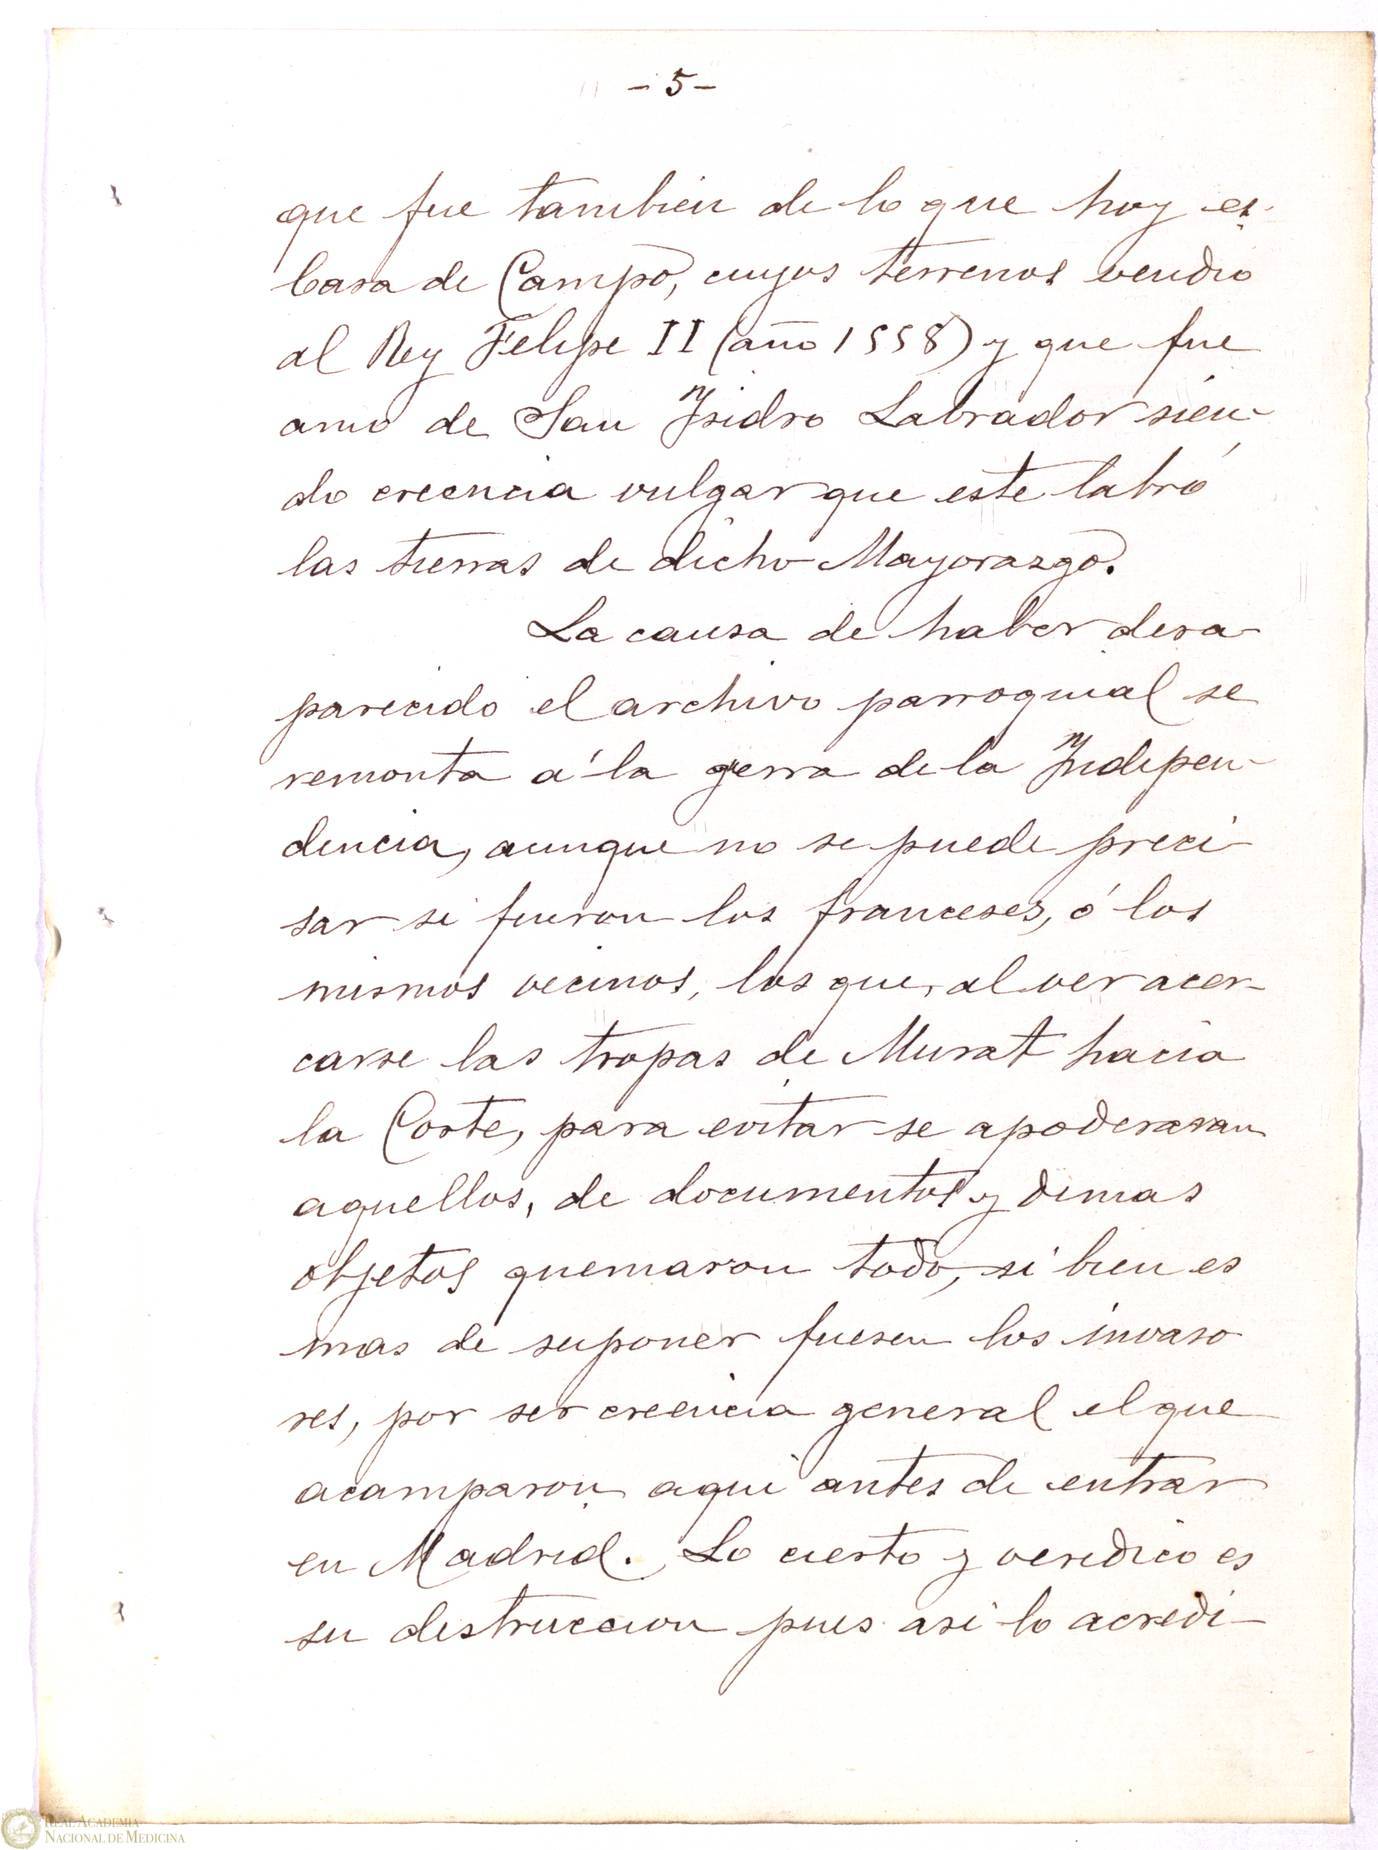 - 5 -
que fue tambien de lo que hoy es
Casa de Campo, cuyos terrenos vendio
al Rey Felipe II (año 1558) y que fue
amo de San Isidro Labrador sien-
do creencia vulgar que este labró
las tierras de dicho Mayorazgo.
La causa de haber desa-
parecido el archivo parroquial se
remonta á la gerra de la Indepen-
dencia, aunque no se puede preci-
sar si fueron los franceses, ó los
mismos vecinos, los que, al ver acer-
carse las tropas de Murat hacia
la Corte, para evitar se apoderaran
aquellos, de documentos y demas
objetos quemaron todo, si bien es
mas de suponer fuesen los invaso
res, por ser creencia general el que
acamparon aqui antes de entrar
en Madrid. Lo cierto y veridico es
su destruccion pues asi lo acredi-
REAL ACADEMIA
NACIONAL DE MEDICINA